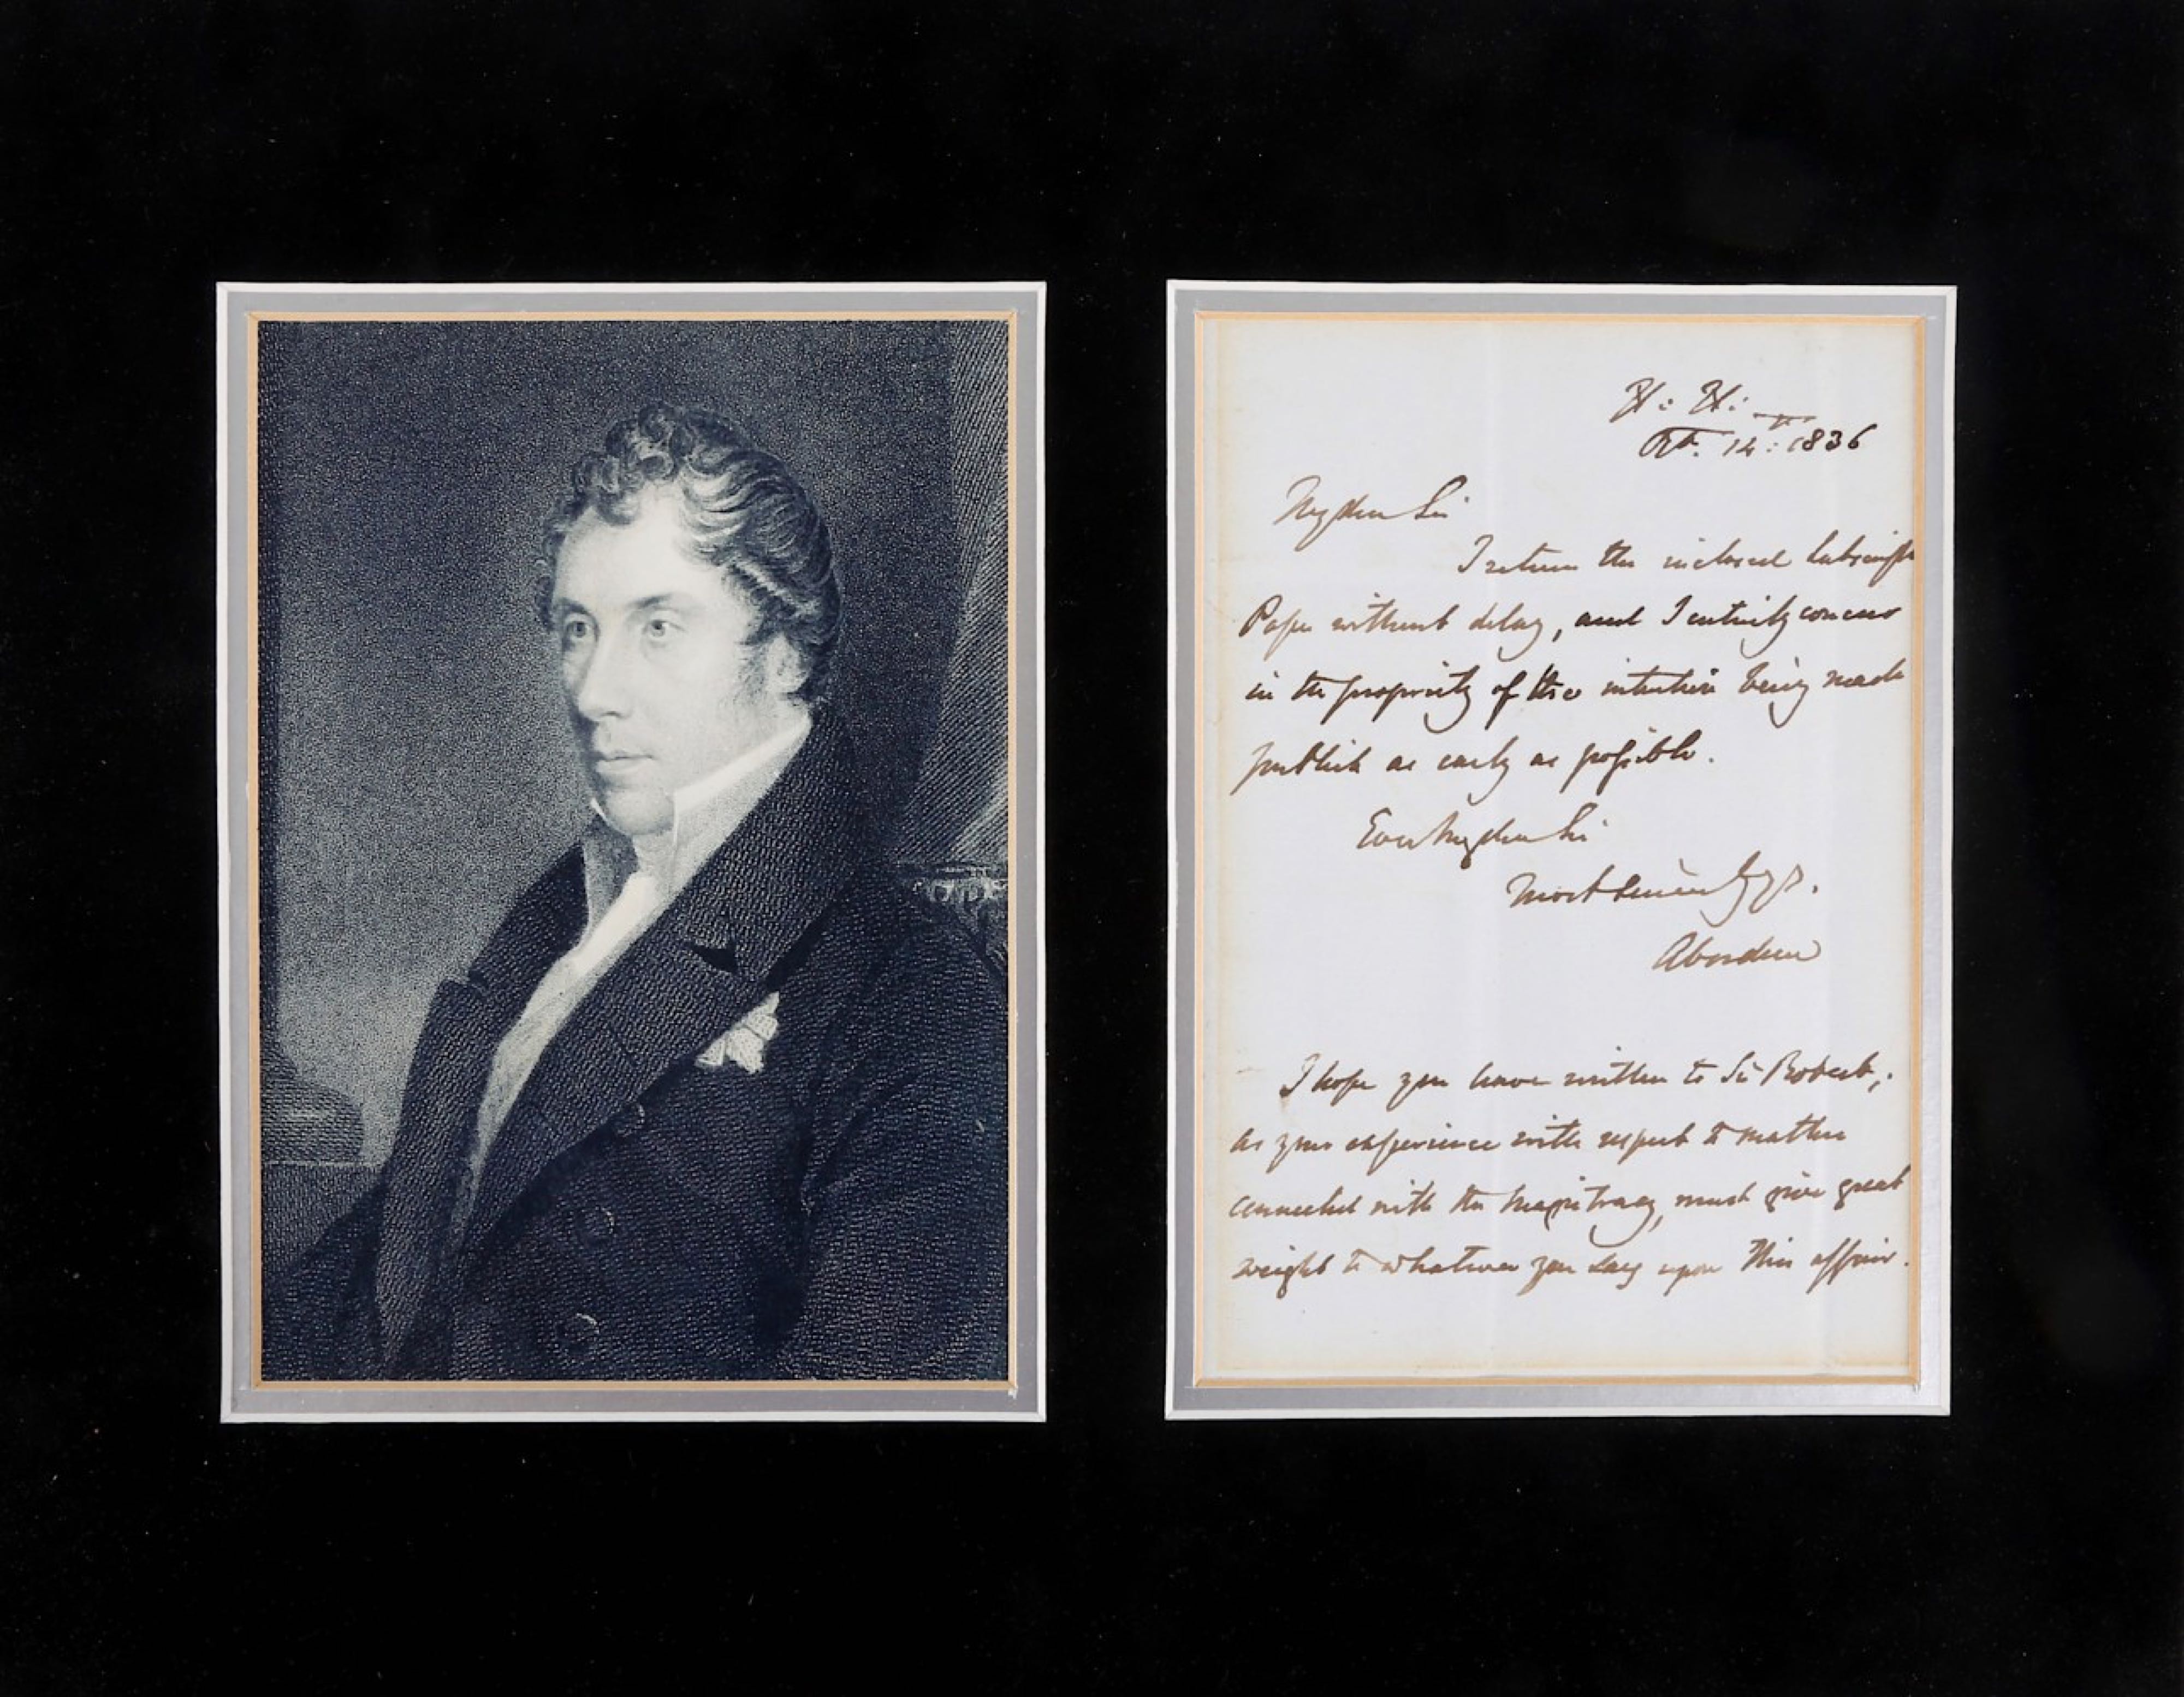 H: H:
Oct. 14: 1836
My dear Sir
I return the inclosed
Paper without delay, and I entirely concur
in the propriety of the intention being made
publick as early as possible.
Ever my dear Sir
Most sincerely yrs.
Aberdeen
I hope you have written to Sir Robert,
as your experience with respect to matters
connected with the Magistracy, must give great
weight to whatever you say upon this affair.